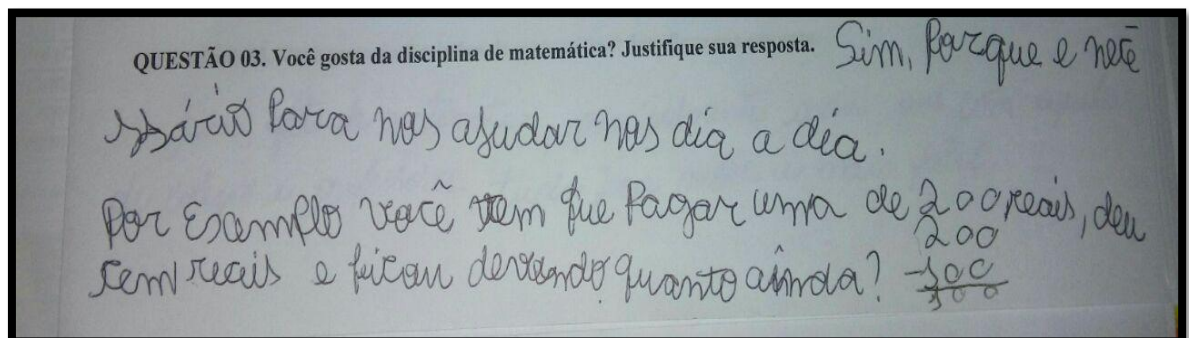 QUESTÃO 03. Você gosta da disciplina de matemática? Justifique sua resposta. Sim, Porque e nece
ssário Para nos ajudar nos dia a dia.
Por Exemplo você tem que Pagar uma de 200 reais, deu
cem reais e ficou devendo quanto ainda? 200
-100
100